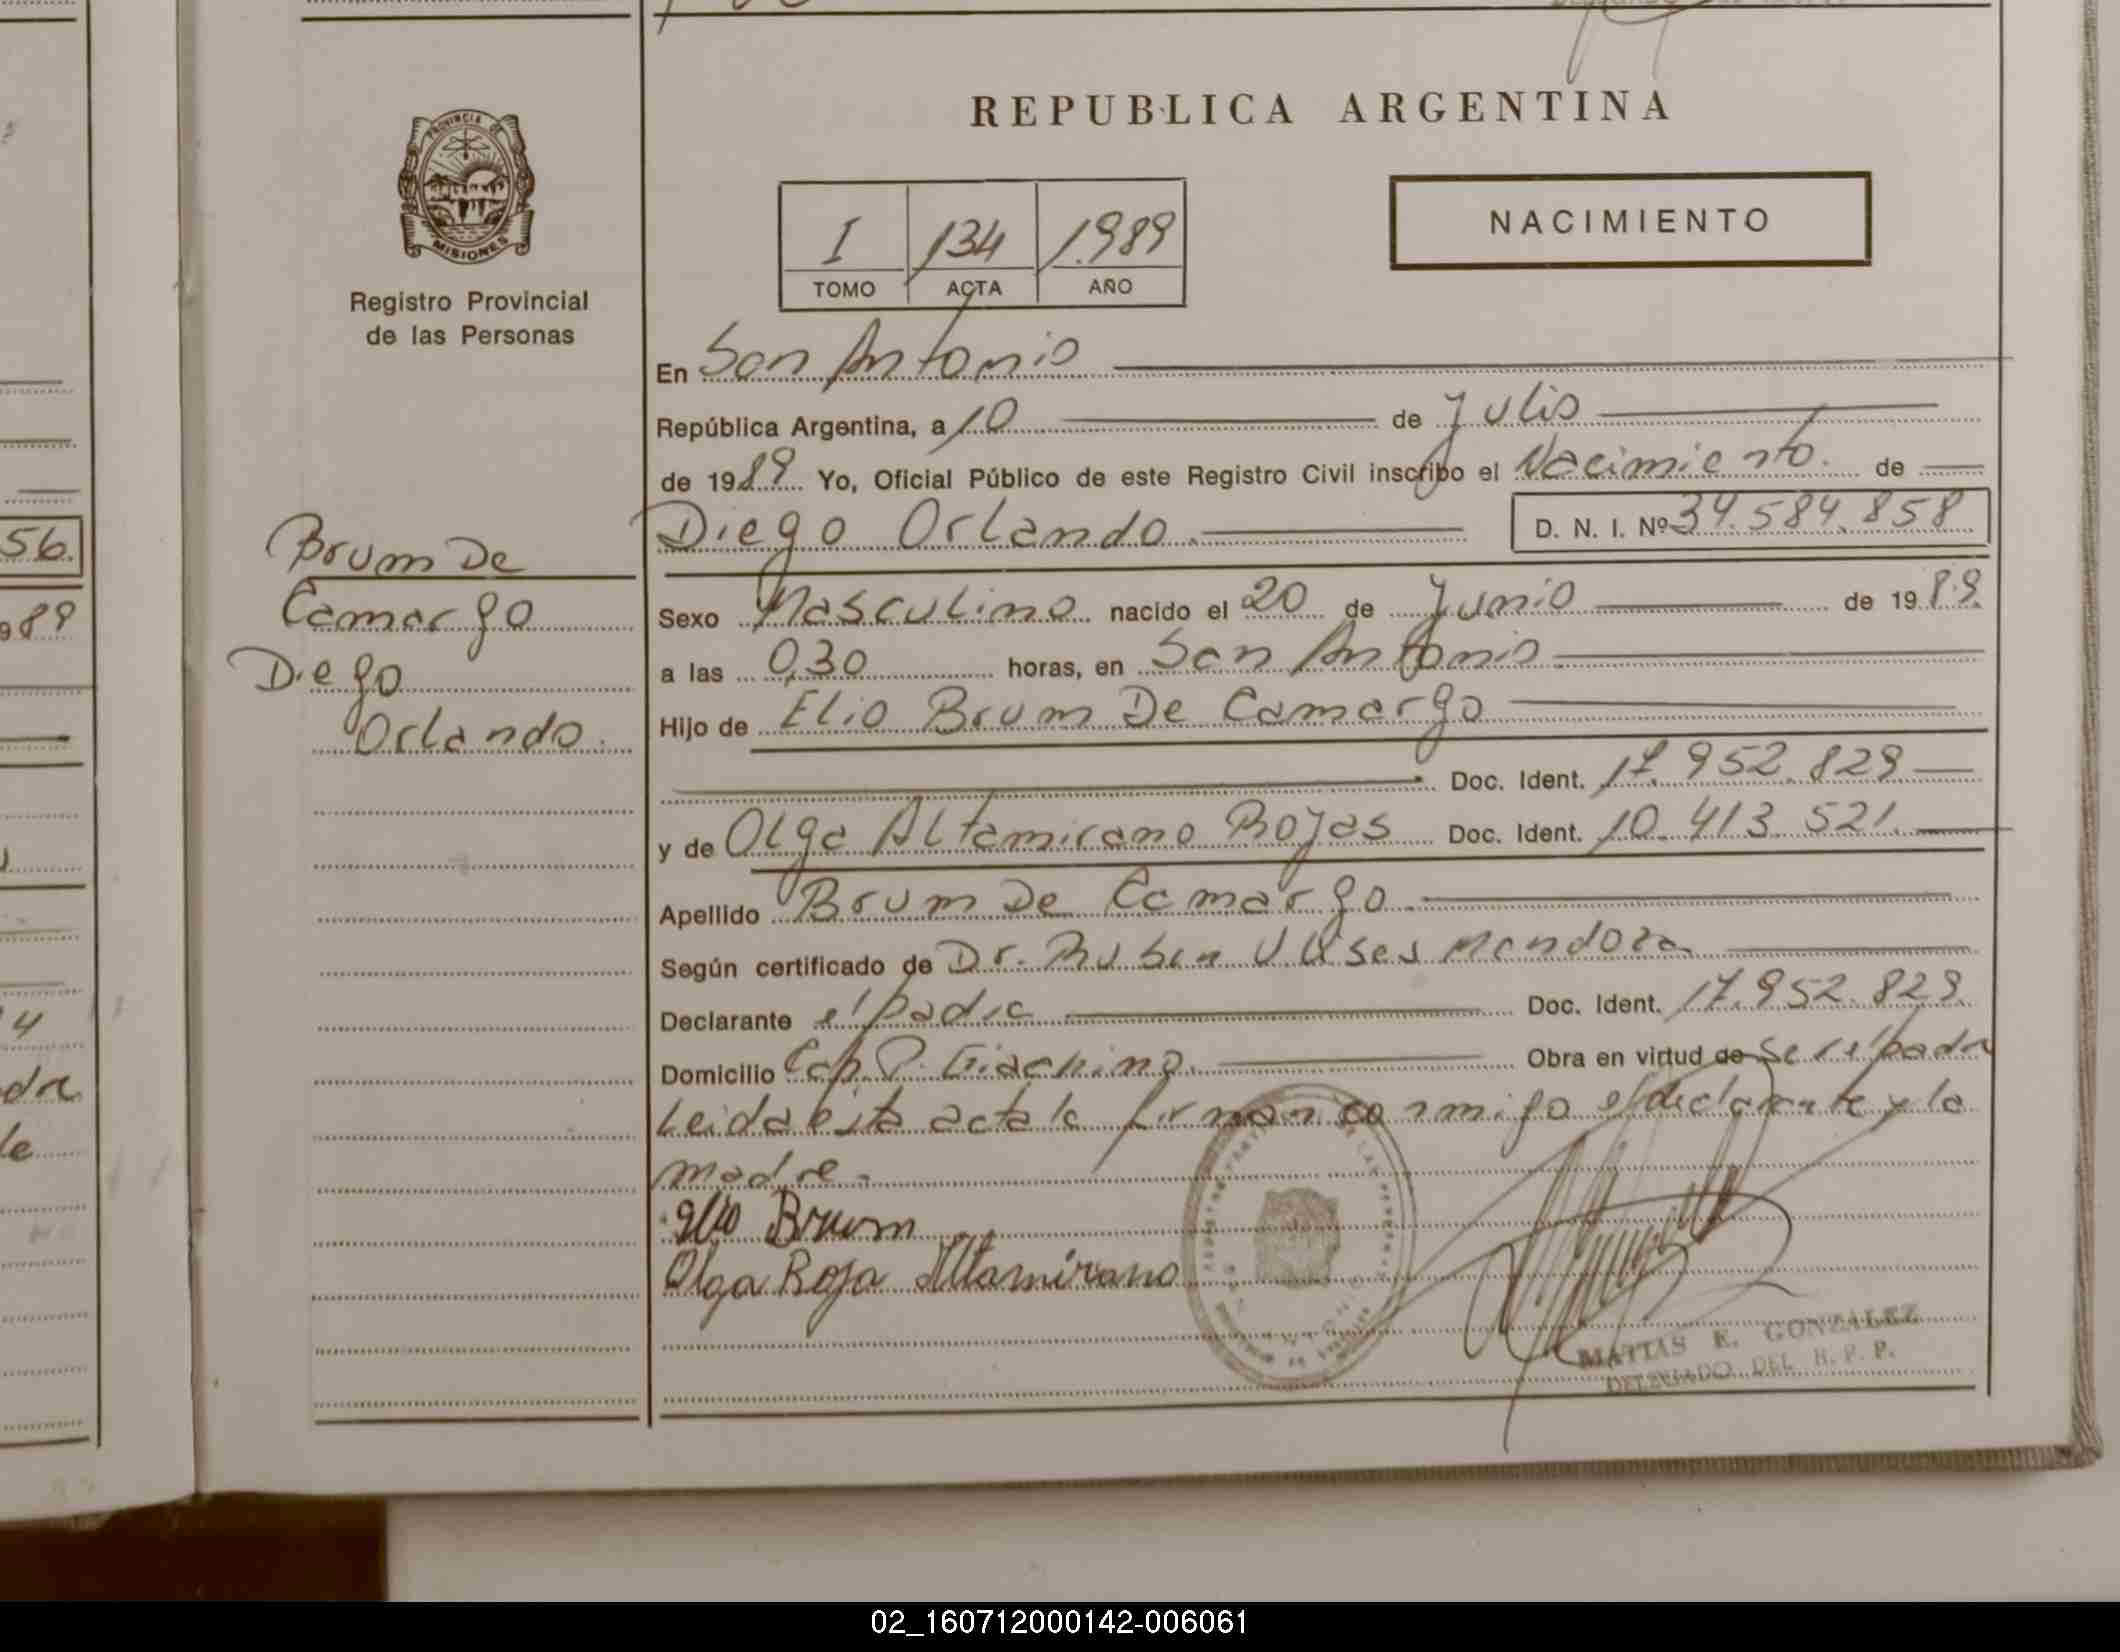 REPUBLICA ARGENTINA
PROVINCIA DE
MISIONES
Registro Provincial
de las Personas
I 134 1.989
TOMO ACTA AÑO
NACIMIENTO
En San Antonio
República Argentina, a 10 de Julio
de 1989 Yo, Oficial Público de este Registro Civil inscribo el Nacimiento. de
Diego Orlando. D. N. I. Nº 34.584.858
Brum De
Camargo
Diego
Orlando.
Sexo Masculino nacido el 20 de Junio de 1989.
a las 0,30 horas, en San Antonio.
Hijo de Elio Brum De Camargo
Doc. Ident. 17.952.829
y de Olga Altamirano Rojas Doc. Ident. 10.413.521.
Apellido Brum De Camargo
Según certificado de Dr. Ruben Ulises Mendoza
Declarante el padre Doc. Ident. 17.952.829.
Domicilio Cap. P. Giachino. Obra en virtud de ser el padre
Leida esta acta la firman conmigo el declarante y la
madre.-
elio Brum
Olga Roja Altamirano
MATIAS E. GONZALEZ
DELEGADO DEL R. P. P.
56.
989
4
dre
le
02_160712000142-006061